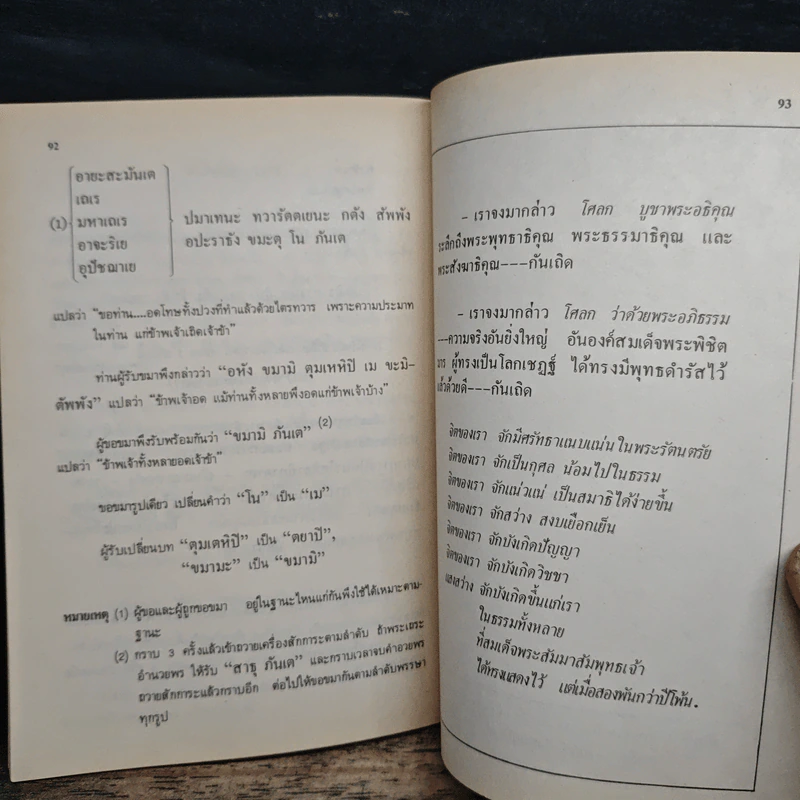 92
อายะสะมันเต
เถเร
(1) มหาเถเร
อาจะริเย
อุปัชฌาเย
ปมาเทนะ ทวารัตตเยนะ กตัง สัพพัง
อปะราธัง ขมะตุ โน ภันเต
แปลว่า “ขอท่าน....อดโทษทั้งปวงที่ทำแล้วด้วยไตรทวาร เพราะความประมาท
ในท่าน แก่ข้าพเจ้าเถิดเจ้าข้า”
ท่านผู้รับขมาพึงกล่าวว่า “อหัง ขมามิ ตุมเหหิปิ เม ขะมิ-
ตัพพัง” แปลว่า “ข้าพเจ้าอด แม้ท่านทั้งหลายพึงอดแก่ข้าพเจ้าบ้าง”
ผู้ขอขมาพึงรับพร้อมกันว่า “ขมามิ ภันเต” (2)
แปลว่า “ข้าพเจ้าทั้งหลายอดเจ้าข้า”
ขอขมารูปเดียว เปลี่ยนคำว่า “โน” เป็น “เม”
ผู้รับเปลี่ยนบท “ตุมเหหิปิ” เป็น “ตยาปิ”,
“ขมามะ” เป็น “ขมามิ”
หมายเหตุ (1) ผู้ขอและผู้ถูกขอขมา อยู่ในฐานะไหนแก่กันพึงใช้ได้เหมาะตาม-
ฐานะ
(2) กราบ 3 ครั้งแล้วเข้าถวายเครื่องสักการะตามลำดับ ถ้าพระเถระ
อำนวยพร ให้รับ “สาธุ ภันเต” และกราบเวลาจบคำอวยพร
ถวายสักการะแล้วกราบอีก ต่อไปให้ขอขมากันตามลำดับพรรษา
ทุกรูป
93
- เราจงมากล่าว โศลก บูชาพระอธิคุณ
ระลึกถึงพระพุทธาธิคุณ พระธรรมาธิคุณ และ
พระสังฆาธิคุณ---กันเถิด
- เราจงมากล่าว โศลก ว่าด้วยพระอภิธรรม
---ความจริงอันยิ่งใหญ่ อันองค์สมเด็จพระพิชิต
มาร ผู้ทรงเป็นโลกเชฏฐ์ ได้ทรงมีพุทธดำรัสไว้
แล้วด้วยดี---กันเถิด
จิตของเรา จักมีศรัทธาแนบแน่นในพระรัตนตรัย
จิตของเรา จักเป็นกุศล น้อมไปในธรรม
จิตของเรา จักแน่วแน่ เป็นสมาธิได้ง่ายขึ้น
จิตของเรา จักสว่าง สงบเยือกเย็น
จิตของเรา จักบังเกิดปัญญา
จิตของเรา จักบังเกิดวิชชา
แสงสว่าง จักบังเกิดขึ้นแก่เรา
ในธรรมทั้งหลาย
ที่สมเด็จพระสัมมาสัมพุทธเจ้า
ได้ทรงแสดงไว้ แต่เมื่อสองพันกว่าปีโพ้น.